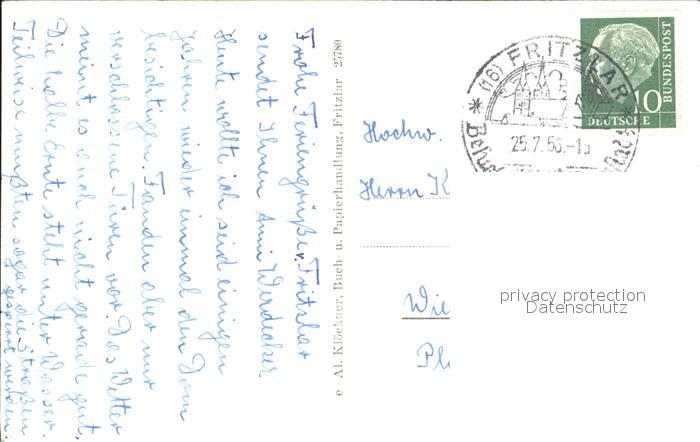 Frohe Feriengrüße v. Fritzlar
sendet Ihnen Anni Werdecker
Heute wollte ich seid einigen
Jahren wieder einmal den Dom
besichtigen. Fanden aber nur
verschlossene Türen vor. Das Wetter
meint es auch nicht gerade gut.
Die halbe Ernte steht unter Wasser.
Teilweise mußten sogar die Straßen
gesperrt werden.
e Al. Klöckner, Buch- u. Papierhandlung, Fritzlar 25780
(16) FRITZLAR
25.7.56.-15
10
DEUTSCHE
BUNDESPOST
Hochw.
Herrn K
Wie
privacy protection
Datenschutz